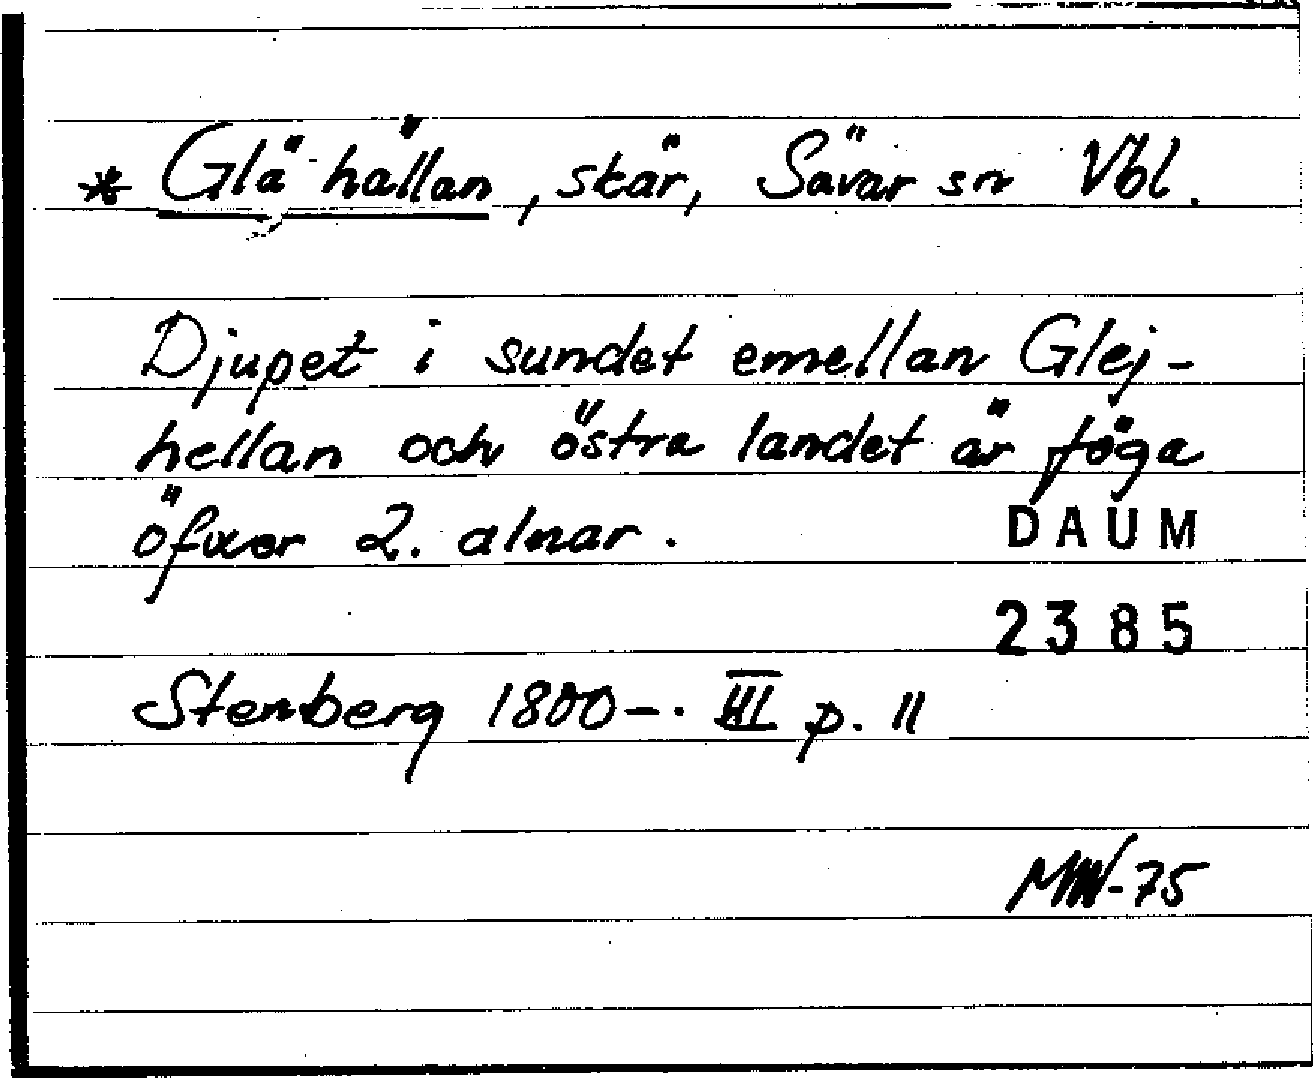 * Glä-hällan, skär, Sävar sn Vbl.
Djupet i sundet emellan Glej-
hellan och östra landet är föga
öfwer 2. alnar.
DAUM
2385
Stenberg 1800-. III p. 11
MW-75